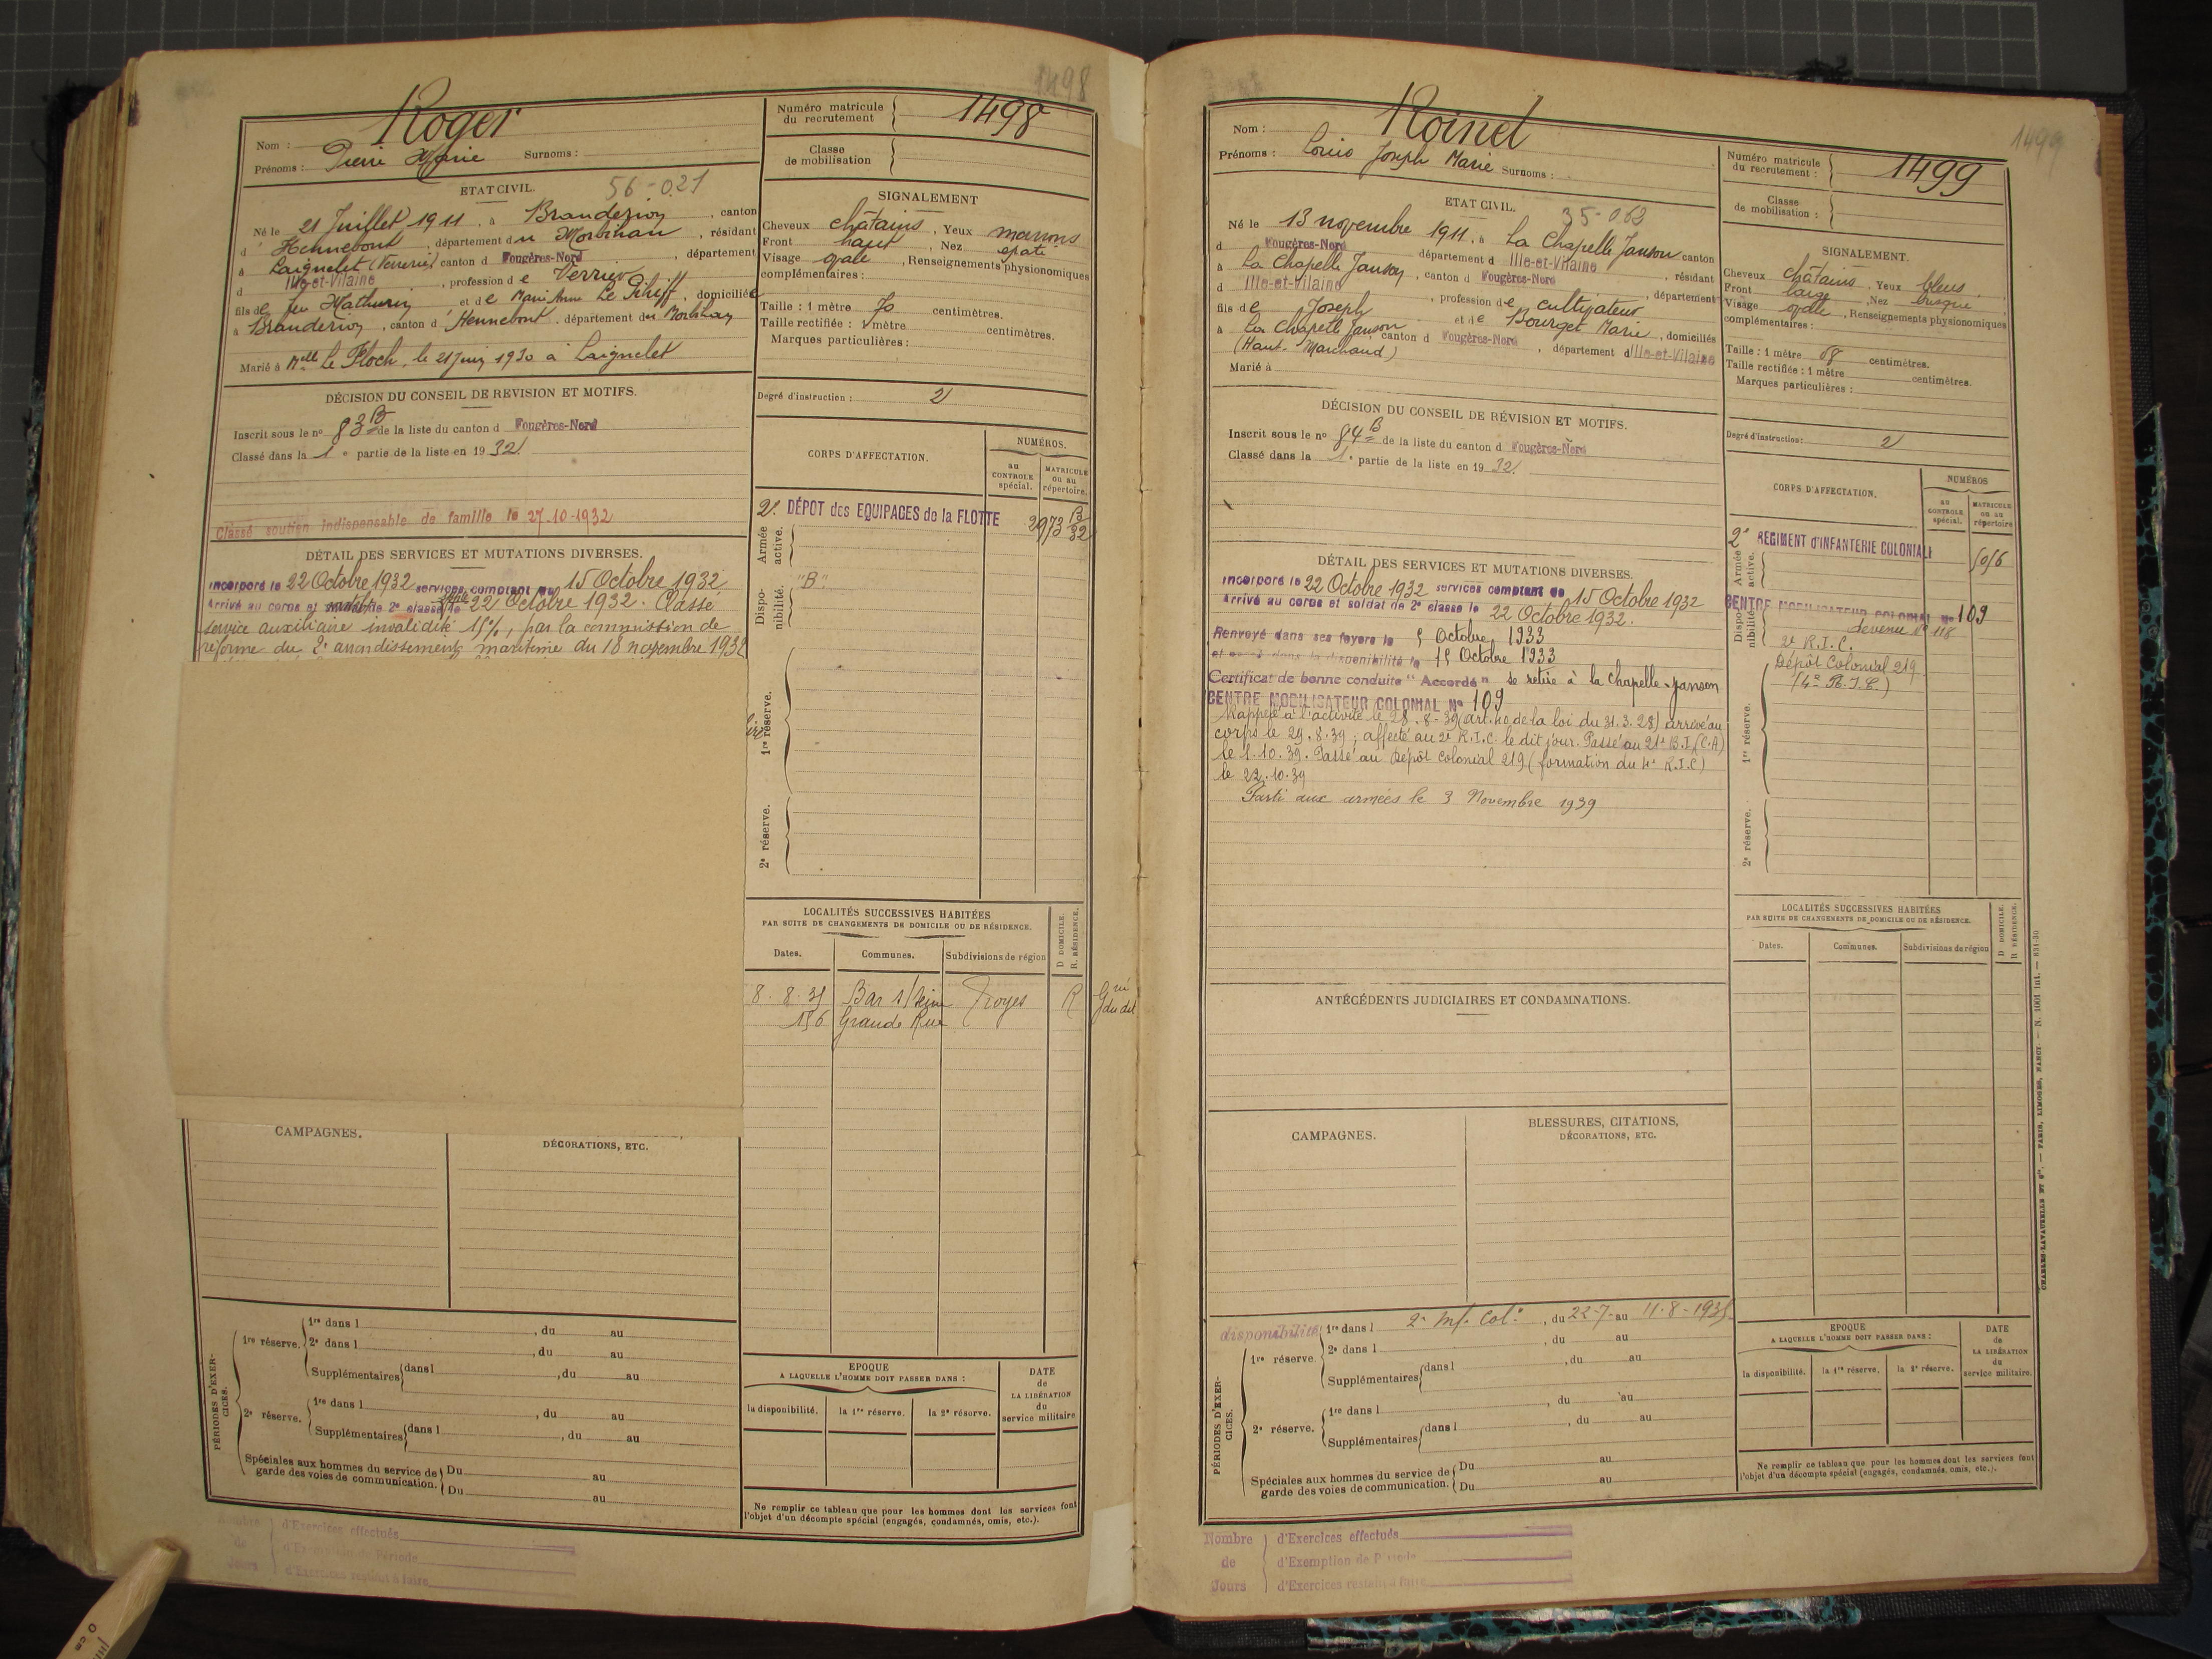 1498
Nom : Roger
Prénoms : Pierre Marie Surnoms :
Numéro matricule du recrutement 1498
Classe de mobilisation
ETAT CIVIL. 56-021
Né le 21 Juillet 1911, à Branderion, canton
d'Hennebont, département du Morbihan, résidant
à Laignelet (Verrerie) canton d Fougères-Nord, département
d Ille-et-Vilaine, profession de Verrier
fils de feu Mathurin et de Marie Anne Le , domiciliés
à Branderion, canton d'Hennebont, département du Morbihan
Marié à Melle Le Floch, le 21 Juin 1930 à Laignelet
SIGNALEMENT
Cheveux châtains, Yeux marrons
Front haut, Nez epaté
Visage ovale, Renseignements physionomiques
complémentaires :
Taille : 1 mètre 70 centimètres.
Taille rectifiée : 1 mètre centimètres.
Marques particulières :
Degré d'instruction : 2
DÉCISION DU CONSEIL DE REVISION ET MOTIFS.
Inscrit sous le no 83 B de la liste du canton d Fougères-Nord
Classé dans la 1e partie de la liste en 1932
Classé soutien indispensable de famille le 27-10-1932
DÉTAIL DES SERVICES ET MUTATIONS DIVERSES.
Incorporé le 22 Octobre 1932 services comptant du 15 Octobre 1932
Arrivé au corps et de 2e classe le 22 Octobre 1932. Classé
service auxiliaire invalidité 15%, par la commission de
réforme du 2e arrondissement maritime du 18 novembre 1932
CORPS D'AFFECTATION.
NUMÉROS.
au CONTROLE spécial.
MATRICULE ou au répertoire.
Armée active.
2e DÉPOT des EQUIPAGES de la FLOTTE 2973 B 32
Dispo-nibilité.
"B"
1re réserve.
2e réserve.
LOCALITÉS SUCCESSIVES HABITÉES
PAR SUITE DE CHANGEMENTS DE DOMICILE OU DE RÉSIDENCE.
Dates. Communes. Subdivisions de région D DOMICILE. R. RÉSIDENCE.
8. 8. 35 Bar s/Seine Troyes R
156 Grande Rue
CAMPAGNES.
DÉCORATIONS, ETC.
PÉRIODES D'EXER-CICES.
1re réserve. 1re dans l , du au
2e dans l , du au
Supplémentaires dans l , du au
2e réserve. 1re dans l , du au
Supplémentaires dans l , du au
Spéciales aux hommes du service de garde des voies de communication. Du au
Du au
EPOQUE
A LAQUELLE L'HOMME DOIT PASSER DANS :
la disponibilité. la 1re réserve. la 2e réserve.
DATE de LA LIBÉRATION du service militaire
Ne remplir ce tableau que pour les hommes dont les services font
l'objet d'un décompte spécial (engagés, condamnés, omis, etc.).
Nombre de Jours
d'Exercices effectués
d'Exemption de Période
d'Exercices restant à faire
1499
Nom : Roinel
Prénoms : Louis Joseph Marie Surnoms :
Numéro matricule du recrutement : 1499
Classe de mobilisation :
ETAT CIVIL. 35-062
Né le 13 novembre 1911, à La Chapelle Janson canton
d Fougères-Nord département d Ille-et-Vilaine, résidant
à La Chapelle Janson, canton d Fougères-Nord, département
d Ille-et-Vilaine, profession de cultivateur
fils de Joseph et de Bourget Marie, domiciliés
à La Chapelle Janson, canton d Fougères-Nord, département d Ille-et-Vilaine
(Haut-Marchand)
Marié à
SIGNALEMENT.
Cheveux châtains, Yeux bleus
Front large, Nez busqué
Visage ovale, Renseignements physionomiques
complémentaires :
Taille : 1 mètre 68 centimètres.
Taille rectifiée : 1 mètre centimètres.
Marques particulières :
Degré d'instruction : 2
DÉCISION DU CONSEIL DE RÉVISION ET MOTIFS.
Inscrit sous le no 84 B de la liste du canton d Fougères-Nord
Classé dans la 1e partie de la liste en 1932.
DÉTAIL DES SERVICES ET MUTATIONS DIVERSES.
Incorporé le 22 Octobre 1932 services comptant du 15 Octobre 1932
Arrivé au corps et soldat de 2e classe le 22 Octobre 1932.
Renvoyé dans ses foyers le 5 Octobre 1933
et passé dans la disponibilité le 15 Octobre 1933
Certificat de bonne conduite "Accordé" se retire à la Chapelle-Janson
CENTRE MOBILISATEUR COLONIAL No 109
Rappelé à l'activité le 28.8-39 (art. 40 de la loi du 31.3.28) arrivé au
corps le 29.8.39 ; affecté au 2e R.I.C. le dit jour. Passé au 21e B.I. (C.A)
le 1.10.39. Passé au Dépôt Colonial 219 (formation du 4e R.I.C)
le 22.10.39
Parti aux armées le 3 Novembre 1939
CORPS D'AFFECTATION.
NUMÉROS
au CONTROLE spécial.
MATRICULE ou au répertoire
Armée active.
2e REGIMENT d'INFANTERIE COLONIALE
Dispo-nibilité.
CENTRE MOBILISATEUR COLONIAL No 109
devenu No 118
2e R.I.C.
Dépôt Colonial 219
(4e R.I.C.)
1re réserve.
2e réserve.
LOCALITÉS SUCCESSIVES HABITÉES
PAR SUITE DE CHANGEMENTS DE DOMICILE OU DE RÉSIDENCE.
Dates. Communes. Subdivisions de région D DOMICILE. R RÉSIDENCE.
ANTÉCÉDENTS JUDICIAIRES ET CONDAMNATIONS.
CAMPAGNES.
BLESSURES, CITATIONS,
DÉCORATIONS, ETC.
PÉRIODES D'EXER-CICES.
disponibilité 1re dans l 2e Inf. Col. , du 22-7- au 11-8-1935
1re réserve. 2e dans l , du au
Supplémentaires dans l , du au
2e réserve. 1re dans l , du au
Supplémentaires dans l , du au
Spéciales aux hommes du service de garde des voies de communication. Du au
Du au
EPOQUE
A LAQUELLE L'HOMME DOIT PASSER DANS :
la disponibilité. la 1re réserve. la 2e réserve.
DATE de LA LIBÉRATION du service militaire.
Ne remplir ce tableau que pour les hommes dont les services font
l'objet d'un décompte spécial (engagés, condamnés, omis, etc.).
Nombre de Jours
d'Exercices effectués
d'Exemption de Période
d'Exercices restant à faire
CHARLES-LAVAUZELLE ET Cie. — PARIS, LIMOGES, NANCY. — N. 1001 int. — 831-30
0 cm